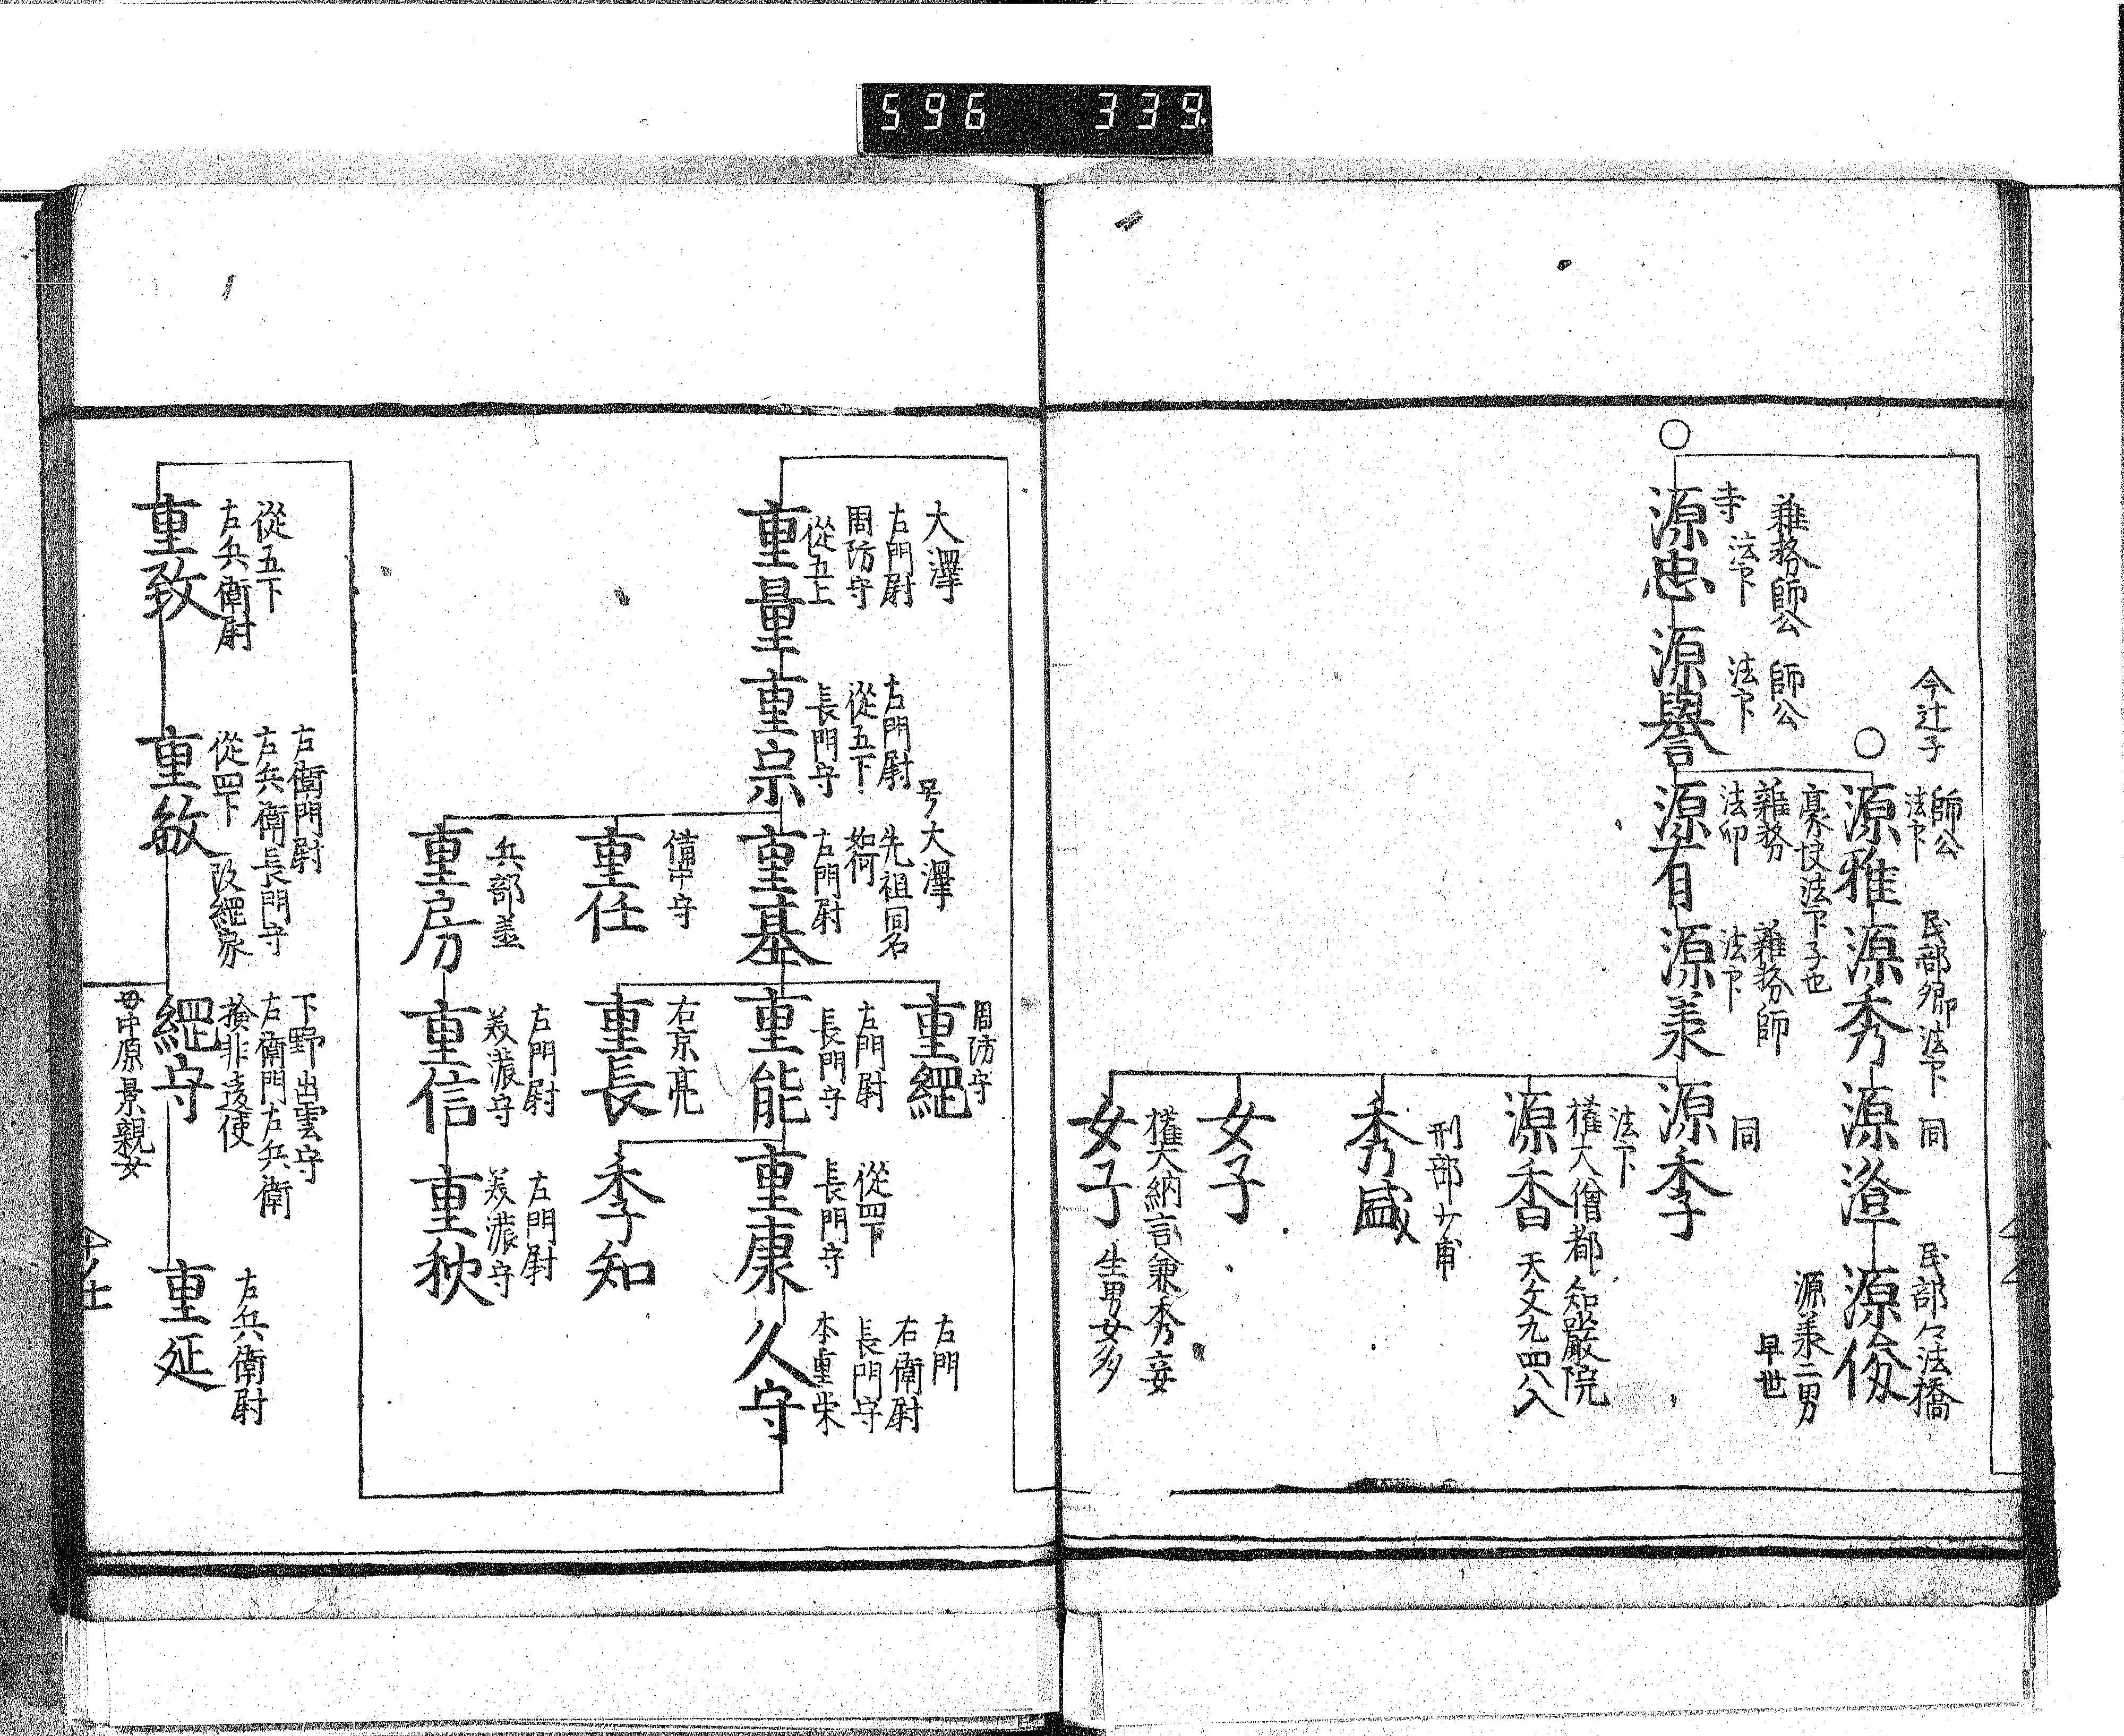 596 339
今辻子
雜務師公
寺
法下
源忠
師公
法下
源譽
師公
法下
源雅
民部卿法下
源秀
同
源澄
民部々法橋
源俊
源兼二男
早世
雜務
法印
源有
雜務師
法下
源兼
同
源季
法下
權大僧都
知嚴院
天文九四八入
源香
刑部少甫
秀盛
女子
權大納言兼秀妾
女子
生男女多
大澤
左門尉
周防守
從五上
重量
左門尉
從五下
長門守
重宗
号大澤
先祖同名
如何
左門尉
重基
備中守
重任
兵部丞
重房
周防守
重經
左門尉
長門守
重能
右京亮
重長
左門尉
美濃守
重信
從四下
長門守
重康
季知
左門尉
美濃守
重秋
左門
右衛尉
長門守
本重栄
久守
從五下
左兵衛尉
重致
右衛門尉
左兵衛長門守
從四下
改經家
重敏
下野出雲守
左衛門左兵衛
檢非違使
經守
母中原景親女
左兵衛尉
重延